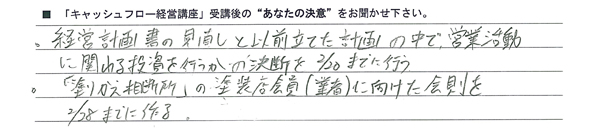 ■ 「キャッシュフロー経営講座」受講後の“あなたの決意”をお聞かせ下さい。
。経営計画書の見直しと以前立てた計画の中で、営業活動
に関わる投資を行うかの決断を2/20までに行う
。「塗りかえ相談所」の塗装店会員(業者)に向けた会則を
2/28までに作る。